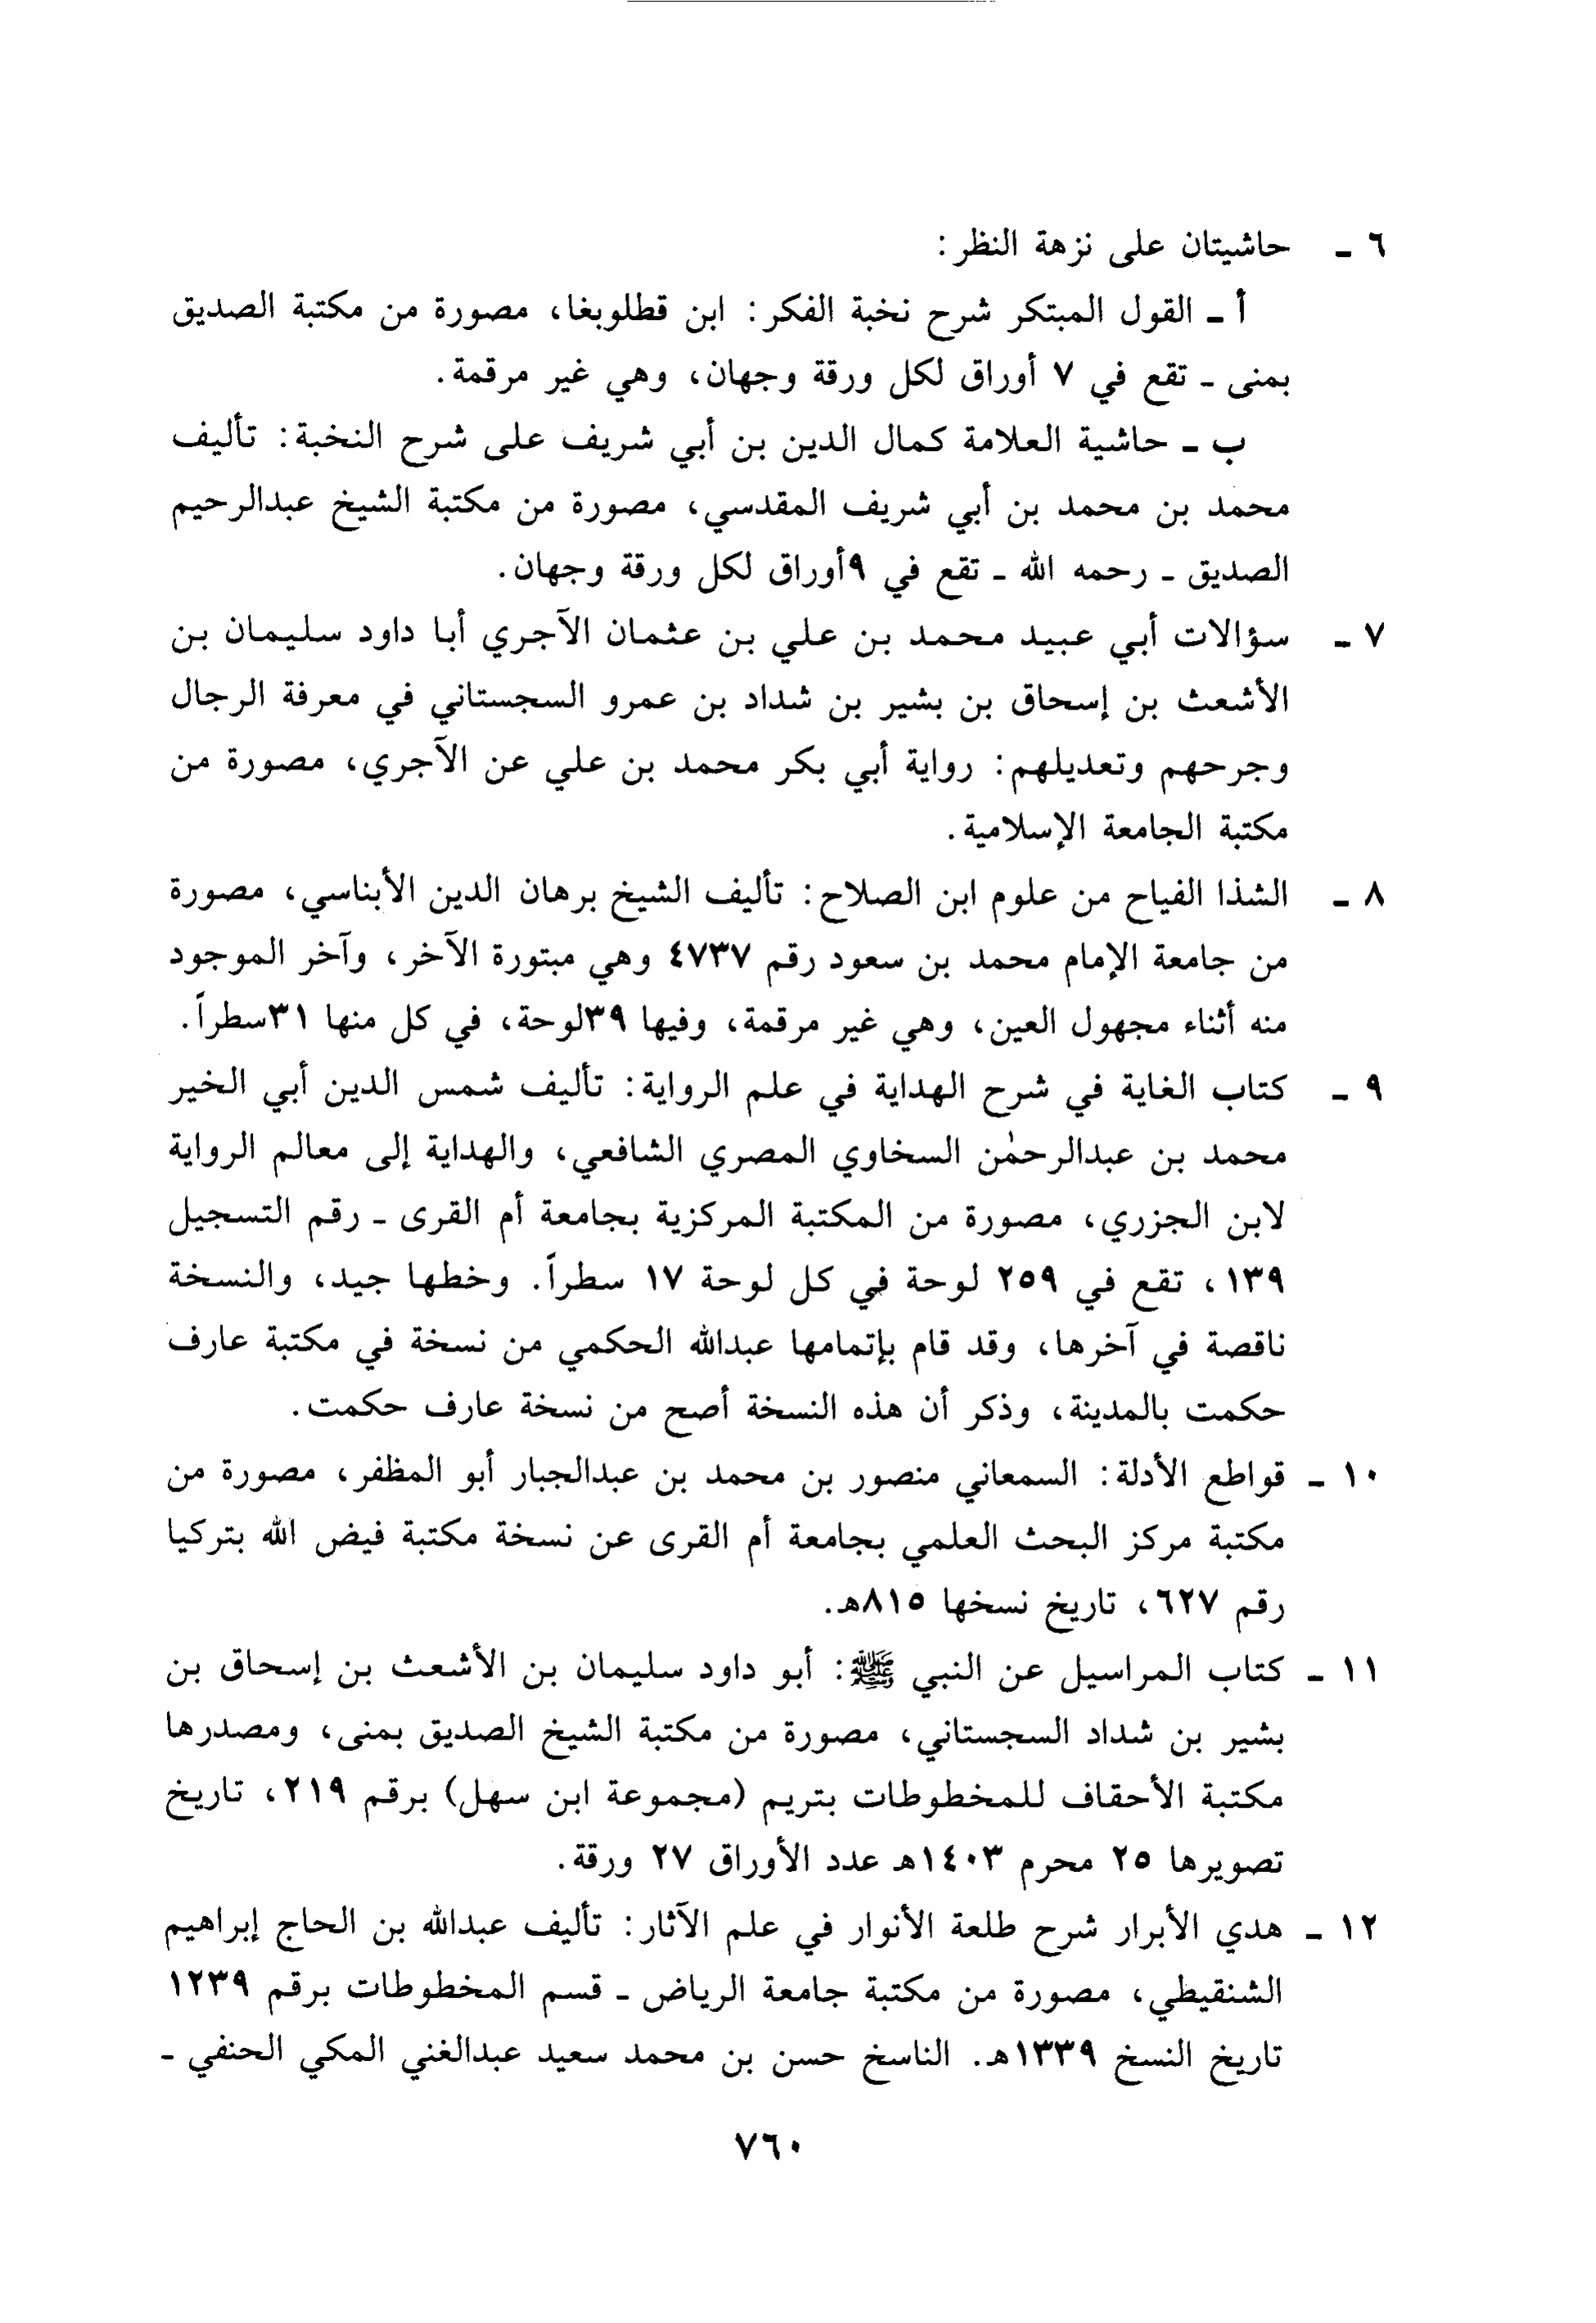 ٦ - حاشيتان على نزهة النظر:
أ - القول المبتكر شرح نخبة الفكر: ابن قطلوبغا، مصورة من مكتبة الصديق
بمنى - تقع في ٧ أوراق لكل ورقة وجهان، وهي غير مرقمة.
ب - حاشية العلامة كمال الدين بن أبي شريف على شرح النخبة: تأليف
محمد بن محمد بن أبي شريف المقدسي، مصورة من مكتبة الشيخ عبدالرحيم
الصديق - رحمه الله - تقع في ٩أوراق لكل ورقة وجهان.
٧ - سؤالات أبي عبيد محمد بن علي بن عثمان الآجري أبا داود سليمان بن
الأشعث بن إسحاق بن بشير بن شداد بن عمرو السجستاني في معرفة الرجال
وجرحهم وتعديلهم: رواية أبي بكر محمد بن علي عن الآجري، مصورة من
مكتبة الجامعة الإسلامية.
٨ - الشذا الفياح من علوم ابن الصلاح: تأليف الشيخ برهان الدين الأبناسي، مصورة
من جامعة الإمام محمد بن سعود رقم ٤٧٣٧ وهي مبتورة الآخر، وآخر الموجود
منه أثناء مجهول العين، وهي غير مرقمة، وفيها ٣٩لوحة، في كل منها ٣١سطراً.
٩ - كتاب الغاية في شرح الهداية في علم الرواية: تأليف شمس الدين أبي الخير
محمد بن عبدالرحمٰن السخاوي المصري الشافعي، والهداية إلى معالم الرواية
لابن الجزري، مصورة من المكتبة المركزية بجامعة أم القرى - رقم التسجيل
١٣٩، تقع في ٢٥٩ لوحة في كل لوحة ١٧ سطراً. وخطها جيد، والنسخة
ناقصة في آخرها، وقد قام بإتمامها عبدالله الحكمي من نسخة في مكتبة عارف
حكمت بالمدينة، وذكر أن هذه النسخة أصح من نسخة عارف حكمت.
١٠ - قواطع الأدلة: السمعاني منصور بن محمد بن عبدالجبار أبو المظفر، مصورة من
مكتبة مركز البحث العلمي بجامعة أم القرى عن نسخة مكتبة فيض الله بتركيا
رقم ٦٢٧، تاريخ نسخها ٨١٥هـ.
١١ - كتاب المراسيل عن النبي ﷺ: أبو داود سليمان بن الأشعث بن إسحاق بن
بشير بن شداد السجستاني، مصورة من مكتبة الشيخ الصديق بمنى، ومصدرها
مكتبة الأحقاف للمخطوطات بتريم (مجموعة ابن سهل) برقم ٢١٩، تاريخ
تصويرها ٢٥ محرم ١٤٠٣هـ عدد الأوراق ٢٧ ورقة.
١٢ - هدي الأبرار شرح طلعة الأنوار في علم الآثار: تأليف عبدالله بن الحاج إبراهيم
الشنقيطي، مصورة من مكتبة جامعة الرياض - قسم المخطوطات برقم ١٢٣٩
تاريخ النسخ ١٣٣٩هـ. الناسخ حسن بن محمد سعيد عبدالغني المكي الحنفي -
٧٦٠